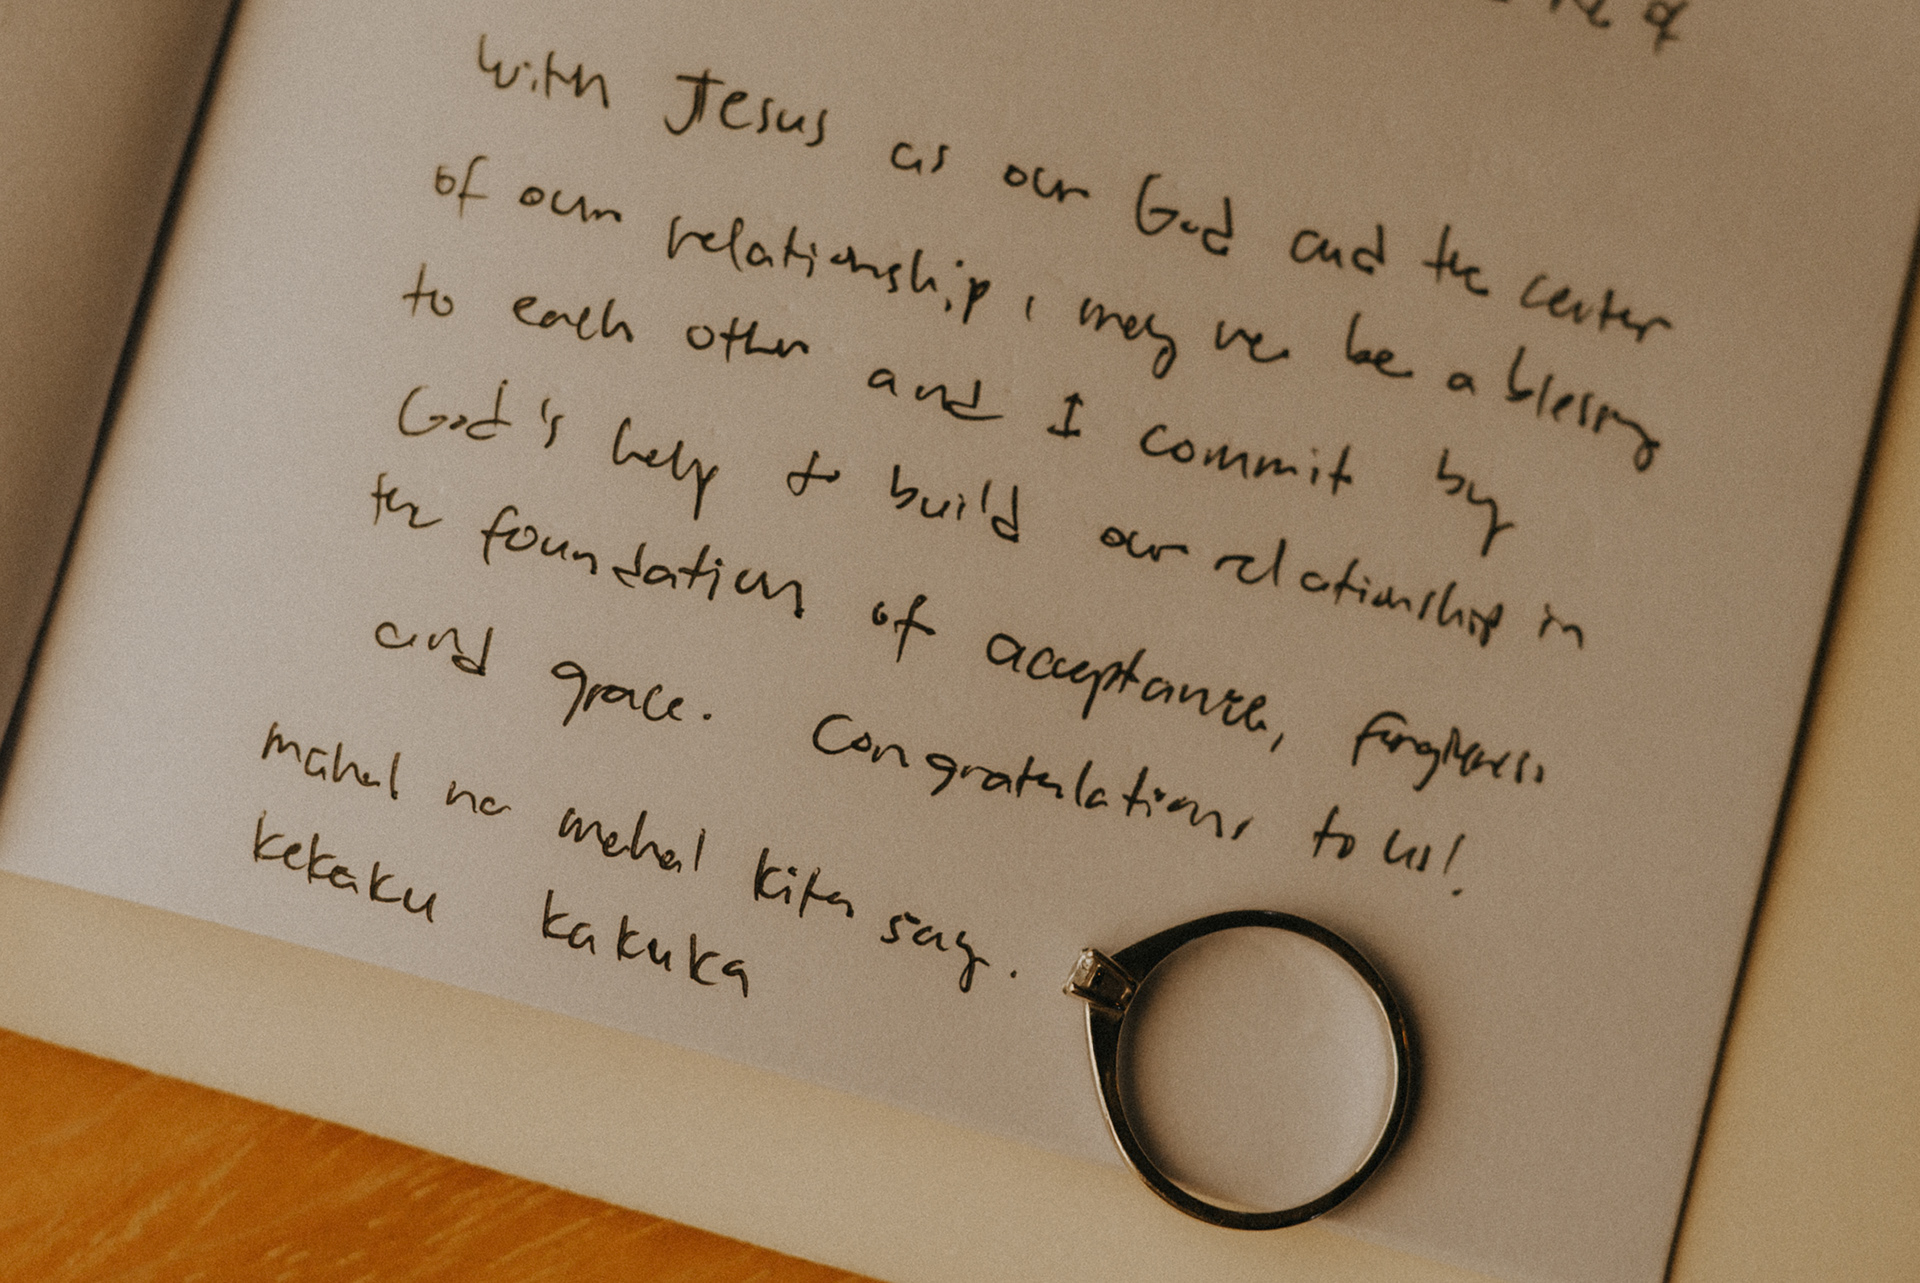 with Jesus as our God and the center
of our relationship, may we be a blessing
to each other and I commit by
God's help to build our relationship in
the foundation of acceptance, forgiveness
and grace. Congratulations to us!
mahal na mahal kita say.
kekaku kakuka